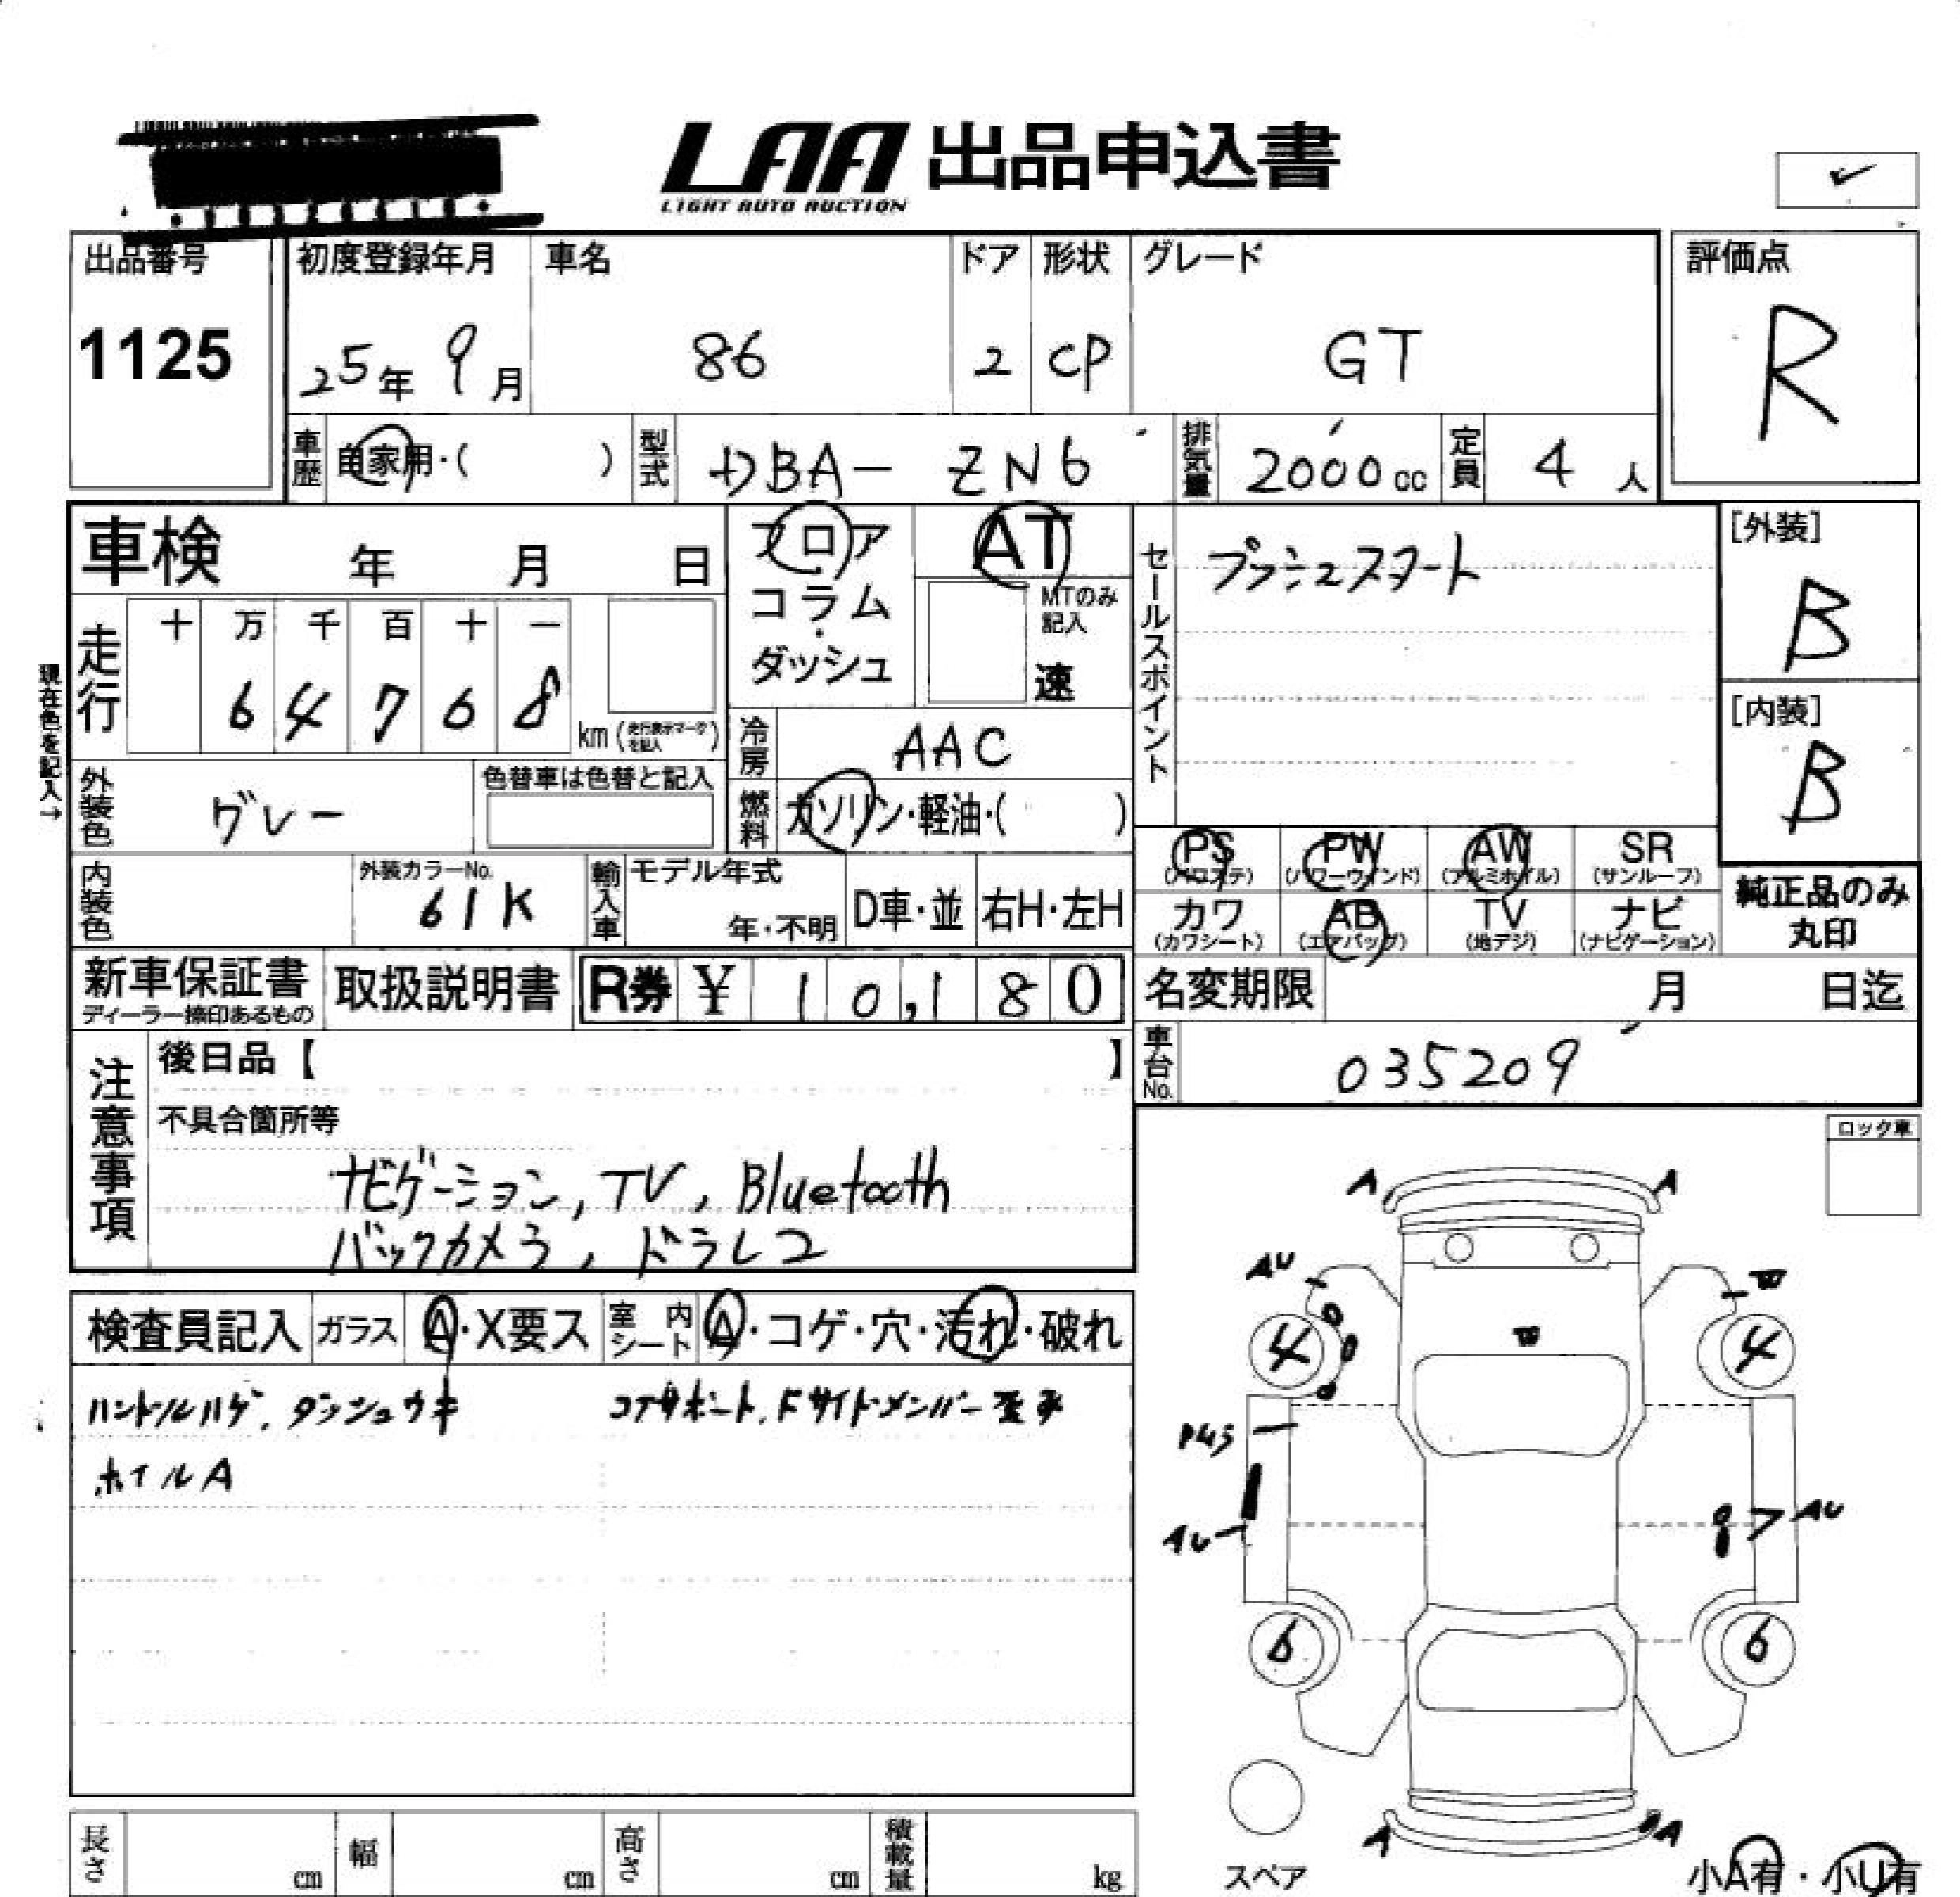 LAA 出品申込書
LIGHT AUTO AUCTION
出品番号 初度登録年月 車名 ドア 形状 グレード 評価点
1125 25年 9月 86 2 CP GT R
車歴 自家用・( ) 型式 DBA- ZN6 排気量 2000cc 定員 4人
車検 年 月 日 フロア・コラム・ダッシュ AT
MTのみ記入 速
セールスポイント プッシュスタート
[外装]
B
[内装]
B
現在色を記入→
走行 十 万 千 百 十 一
6 4 7 6 8 km (走行表示マークを記入)
冷房 AAC
外装色 グレー 色替車は色替と記入
燃料 ガソリン・軽油・( )
PS (パワステ) PW (パワーウインド) AW (アルミホイル) SR (サンルーフ)
カワ (カワシート) AB (エアバッグ) TV (地デジ) ナビ (ナビゲーション)
純正品のみ
丸印
内装色 外装カラーNo. 61K 輸入車 モデル年式 年・不明 D車・並 右H・左H
新車保証書 ディーラー捺印あるもの 取扱説明書 R券 ¥ 10,180
名変期限 月 日迄
車台No. 035209
注意事項 後日品【 】
不具合箇所等
ナビゲーション, TV, Bluetooth
バックカメラ, ドラレコ
ロック車
検査員記入 ガラス A・X要ス 室内シート A・コゲ・穴・汚れ・破れ
ハンドルハゲ, ダッシュウキ コアサポート, Fサイドメンバー歪み
ホイルA
A A
AU
4 4
AU AU
6 6
A A
スペア
小A有・小U有
長さ cm 幅 cm 高さ cm 積載量 kg